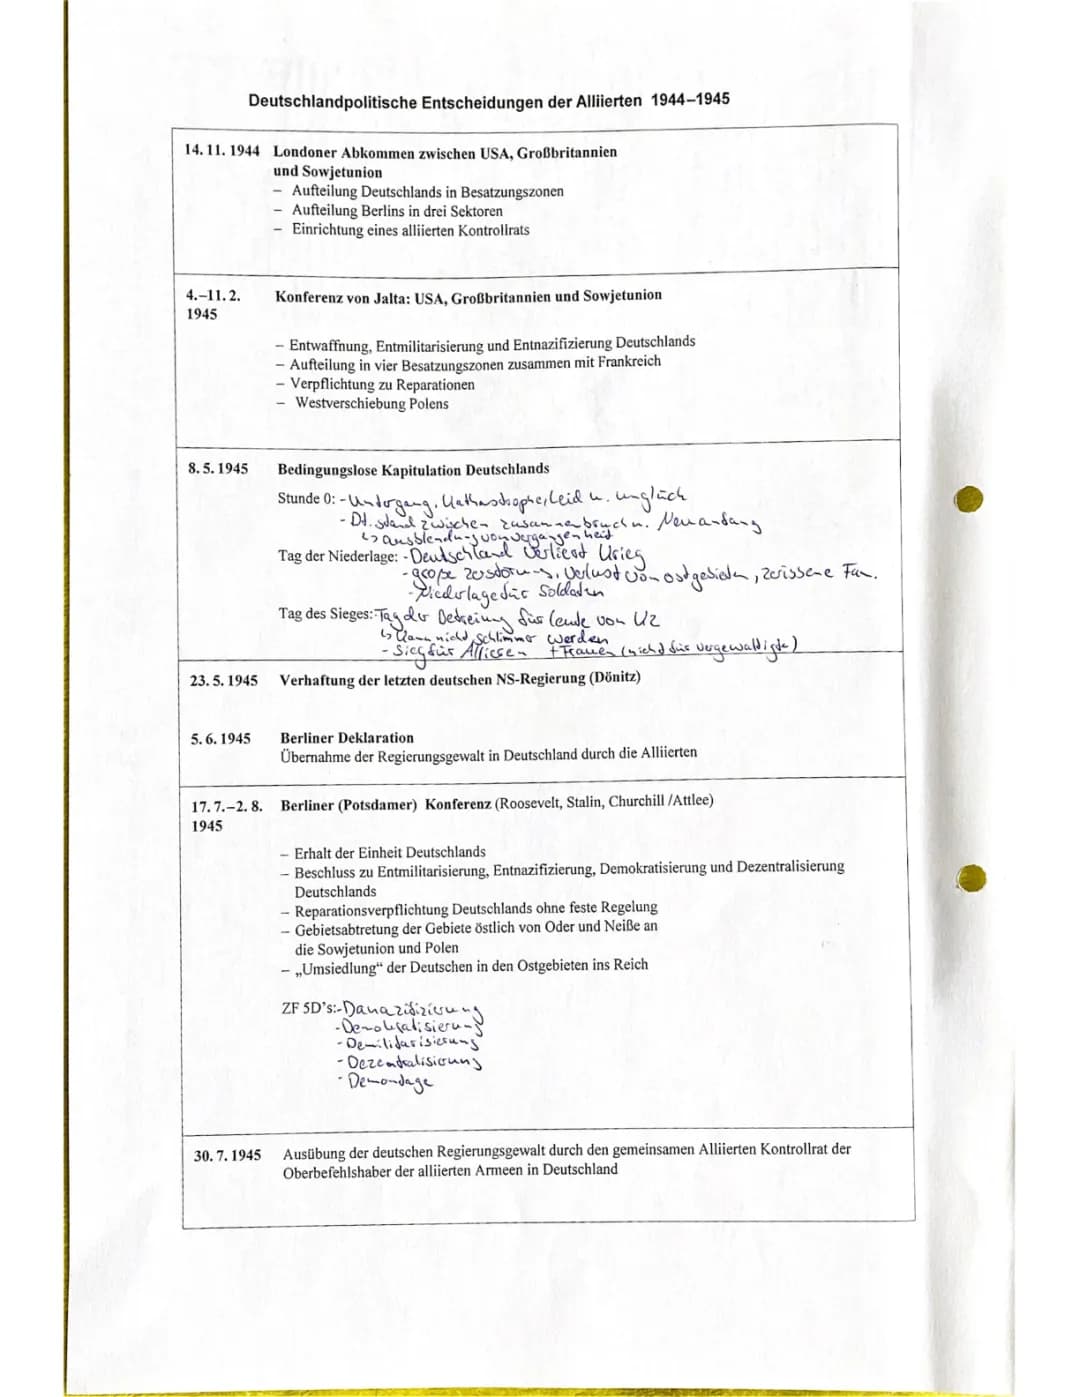 Deutschlandpolitische Entscheidungen der Alliierten 1944–1945
14. 11. 1944 Londoner Abkommen zwischen USA, Großbritannien
und Sowjetunion
– Aufteilung Deutschlands in Besatzungszonen
– Aufteilung Berlins in drei Sektoren
– Einrichtung eines alliierten Kontrollrats
4.–11. 2. Konferenz von Jalta: USA, Großbritannien und Sowjetunion
1945
– Entwaffnung, Entmilitarisierung und Entnazifizierung Deutschlands
– Aufteilung in vier Besatzungszonen zusammen mit Frankreich
– Verpflichtung zu Reparationen
– Westverschiebung Polens
8. 5. 1945 Bedingungslose Kapitulation Deutschlands
Stunde 0: - Untergang, Kathastrophe, Leid u. unglück
- Dt. stand zwischen zusammenbruch u. Neuanfang
↳ ausblendung von vergangenheit
Tag der Niederlage: - Deutschland verliert Krieg
- große zerstörung, Verlust von ostgebieten, zerissene Fam.
- Niederlage für Soldaten
Tag des Sieges: - Tag der Befreiung für Leute von KZ
↳ kann nicht schlimmer werden
- Sieg für Alliierten + Frauen (nicht für vergewaltigte)
23. 5. 1945 Verhaftung der letzten deutschen NS-Regierung (Dönitz)
5. 6. 1945 Berliner Deklaration
Übernahme der Regierungsgewalt in Deutschland durch die Alliierten
17. 7.–2. 8. Berliner (Potsdamer) Konferenz (Roosevelt, Stalin, Churchill /Attlee)
1945
– Erhalt der Einheit Deutschlands
– Beschluss zu Entmilitarisierung, Entnazifizierung, Demokratisierung und Dezentralisierung
Deutschlands
– Reparationsverpflichtung Deutschlands ohne feste Regelung
– Gebietsabtretung der Gebiete östlich von Oder und Neiße an
die Sowjetunion und Polen
– „Umsiedlung“ der Deutschen in den Ostgebieten ins Reich
ZF 5D's: - Danazifizierung
- Demokratisierung
- Demilitarisierung
- Dezentralisierung
- Demontage
30. 7. 1945 Ausübung der deutschen Regierungsgewalt durch den gemeinsamen Alliierten Kontrollrat der
Oberbefehlshaber der alliierten Armeen in Deutschland